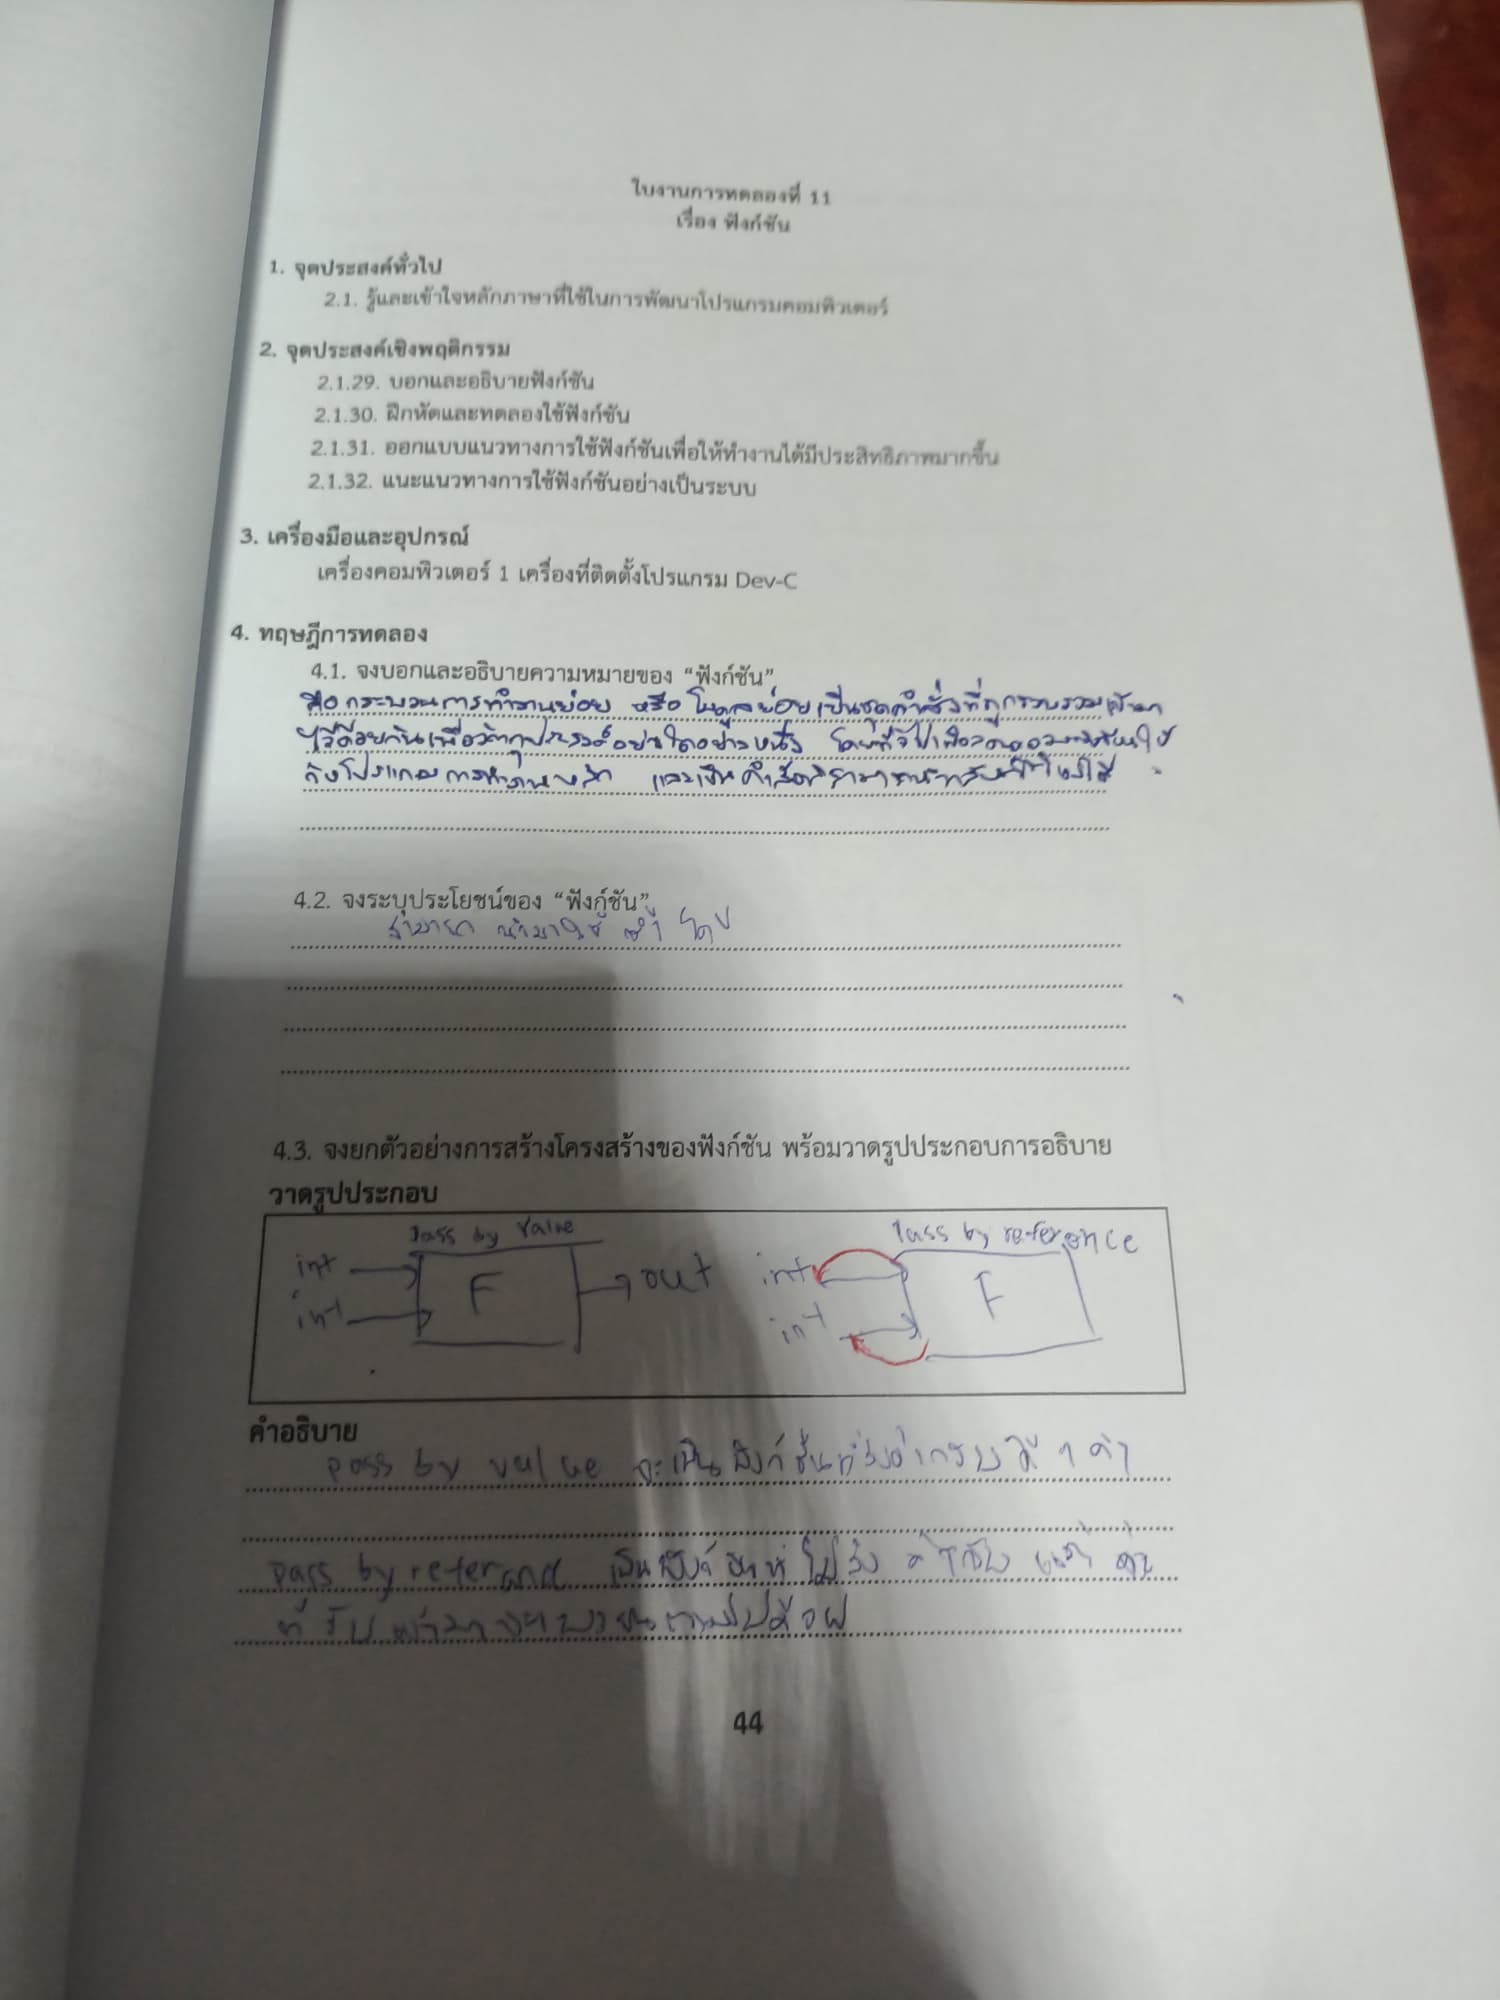 ใบงานการทดลองที่ 11
เรื่อง ฟังก์ชัน
1. จุดประสงค์ทั่วไป
2.1. รู้และเข้าใจหลักภาษาที่ใช้ในการพัฒนาโปรแกรมคอมพิวเตอร์
2. จุดประสงค์เชิงพฤติกรรม
2.1.29. บอกและอธิบายฟังก์ชัน
2.1.30. ฝึกหัดและทดลองใช้ฟังก์ชัน
2.1.31. ออกแบบแนวทางการใช้ฟังก์ชันเพื่อให้ทำงานได้มีประสิทธิภาพมากขึ้น
2.1.32. แนะแนวทางการใช้ฟังก์ชันอย่างเป็นระบบ
3. เครื่องมือและอุปกรณ์
เครื่องคอมพิวเตอร์ 1 เครื่องที่ติดตั้งโปรแกรม Dev-C
4. ทฤษฎีการทดลอง
4.1. จงบอกและอธิบายความหมายของ "ฟังก์ชัน"
คือกระบวนการทำงานย่อย หรือ โมดูลย่อยเป็นชุดคำสั่งที่ถูกรวบรวมเข้ามา
ไว้ด้วยกันเพื่อวัตถุประสงค์อย่างใดอย่างหนึ่ง
4.2. จงระบุประโยชน์ของ "ฟังก์ชัน"
สามารถ นำมาใช้ ซ้ำ ได้
4.3. จงยกตัวอย่างการสร้างโครงสร้างของฟังก์ชัน พร้อมวาดรูปประกอบการอธิบาย
วาดรูปประกอบ
pass by value
pass by reference
int
F
out
int
int
F
int
คำอธิบาย
pass by value จะเป็นฟังก์ชันที่ส่งค่ากลับได้ 1 ค่า
pass by
44